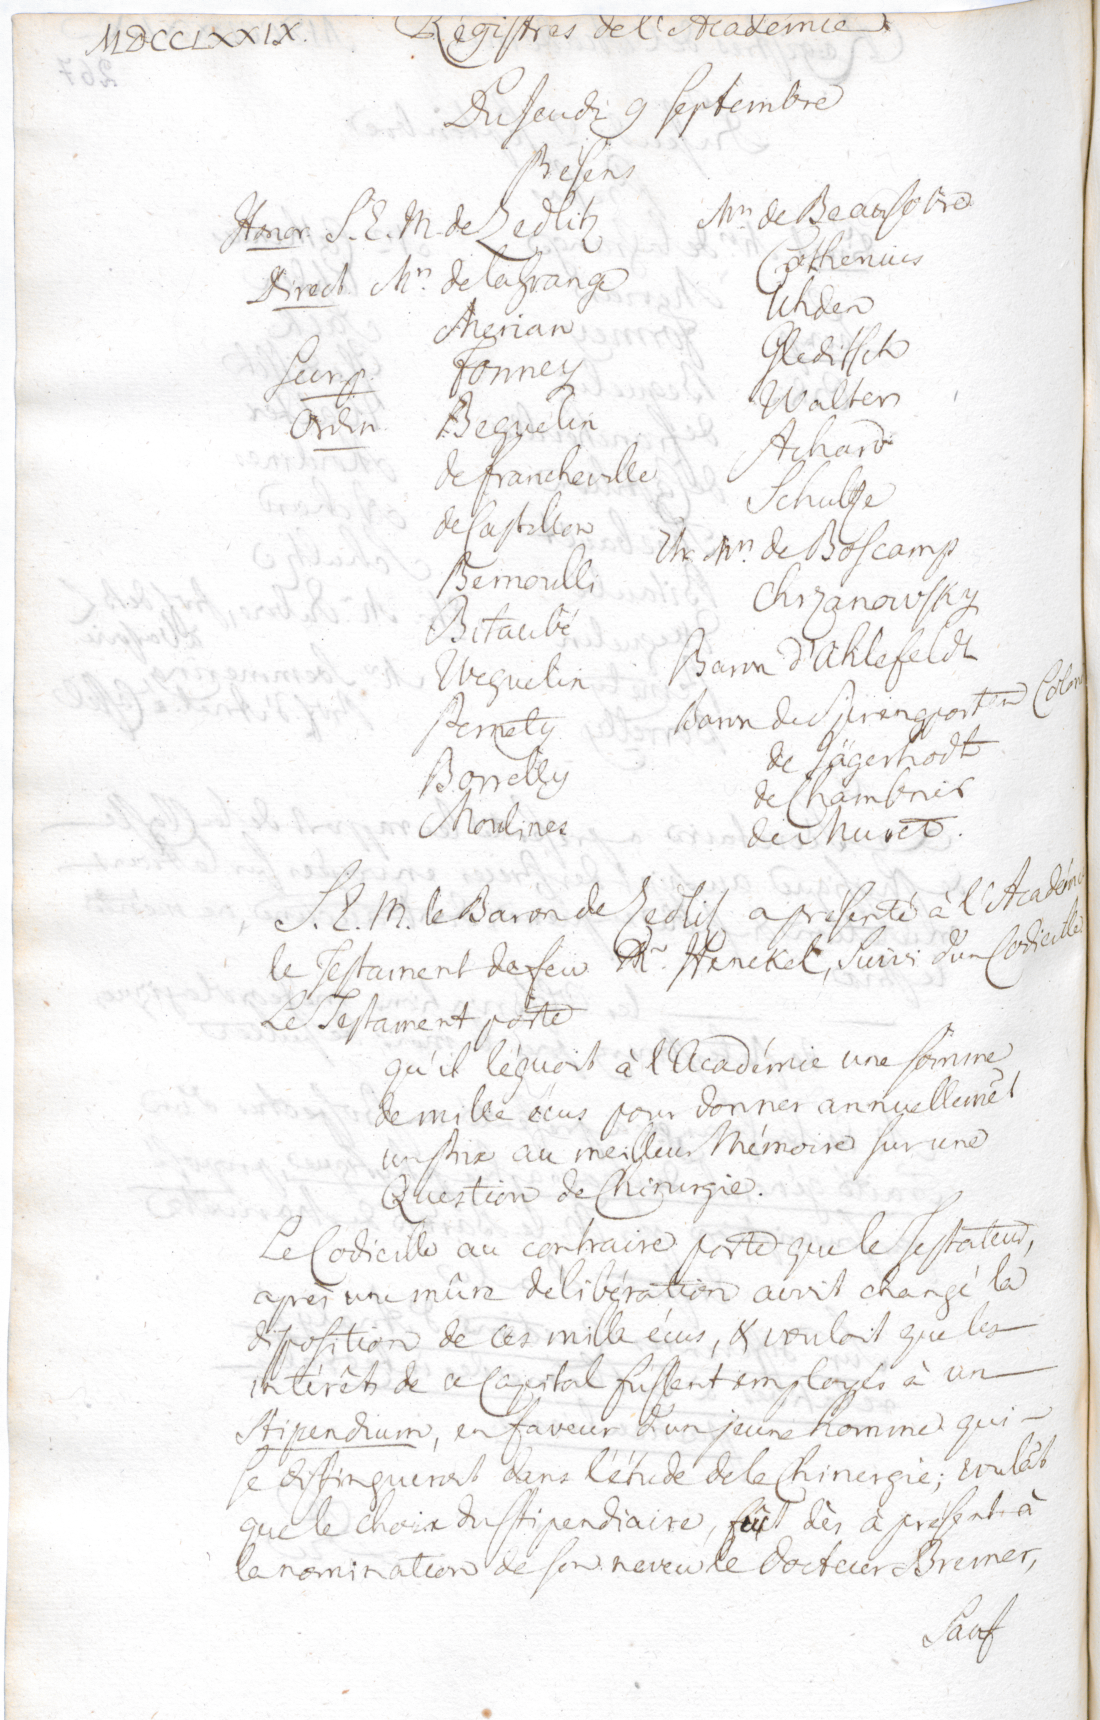 MDCCLXXIX. Régistres de l'Académie.
Du Jeudi 9 Septembre
Présens
Honor. S. E. M. de Zedlitz
Direct Mrs. de la Grange
Merian
Secr. p. Formey
Ordin Beguelin
de Francheville
de Castillon
Bernoulli
Bitaubé
Weguelin
Pernety
Borrelly
Moulines
Mrs. de Beausobre
Cothenius
Uhden
Gleditsch
Walter
Achard
Schultze
Mrs. de Boscamp
Chrzanowsky
Baron d'Ahlefeldt
Baron de Sprengporten Colon
de Jägerhodt
de Chambrier
de Muret.
S. E. M. le Baron de Zedlitz a présenté à l'Académie
le Testament de feu Mr. Henckel, suivi d'un Codicille
Le Testament porte
qu'il léguoit à l'Académie une somme
de mille écus pour donner annuellemẽt
un Prix au meilleur Mémoire sur une
Question de Chirurgie.
Le Codicille au contraire porte que le Testateur,
après une mûre délibération avoit changé la
disposition de ces mille écus, & vouloit que les
intérêts de ce Capital fussent employés à un
Stipendium, en faveur d'un jeune homme qui
se distingueroit dans l'étude de la Chirurgie; voulãt
que le choix du Stipendiaire, fût dès à présent à
la nomination de son neveu le Docteur Bremer,
Sauf